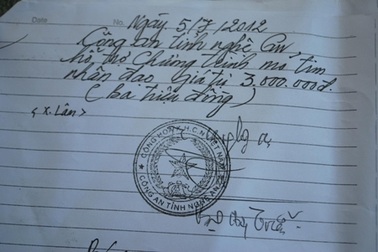 Date No.
Ngày 5/7/2012
Công an tỉnh nghệ an
hỗ trợ Chương trình mổ tim
nhân đạo giá trị 3.000.000đ.
(ba triệu đồng)
< X. Lâm >
CÔNG AN TỈNH NGHỆ AN